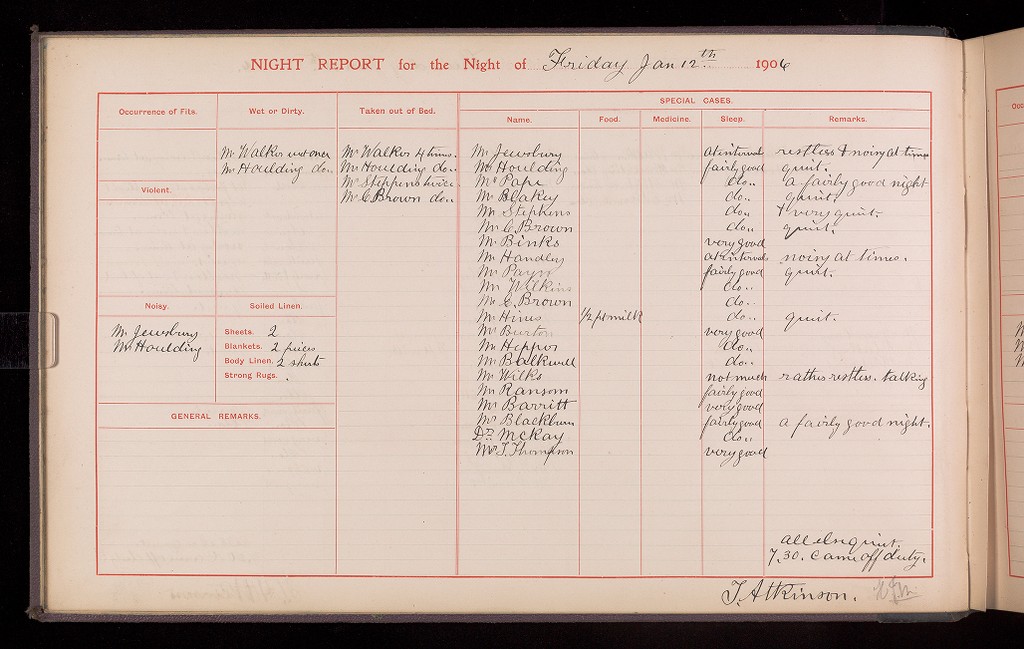 NIGHT REPORT for the Night of Friday Jan 12th 1906
Occurrence of Fits.
Wet or Dirty.
Mr Walker wet once
Mr Houlding do..
Taken out of Bed.
Mr Walker 4 times.
Mr Houlding do..
Mr Stephens twice
Mr C Brown do..
Violent.
Noisy.
Mr Jewsbury
Mr Houlding
Soiled Linen.
Sheets. 2
Blankets. 2 pieces
Body Linen. 2 shirts
Strong Rugs. .
GENERAL REMARKS.
SPECIAL CASES.
Name. Food. Medicine. Sleep. Remarks.
Mr Jewsbury at intervals restless & noisy at times
Mr Houlding fairly good quiet.
Mr Pape do.. a fairly good night
Mr Blakey do.. quiet.
Mr Stephens do.. & very quiet.
Mr C. Brown do.. quiet.
Mr Binks very good
Mr Handley at intervals noisy at times.
Mr Payn fairly good quiet.
Mr Wilkins do..
Mr C. Brown do..
Mr Hines 1/2 pt milk do.. quiet.
Mr Burton very good
Mr Heppor do..
Mr Balkwill do..
Mr Wilks not much rather restless. talking
Mr Ransom fairly good
Mr Barritt very good
Mr Blackburn fairly good a fairly good night.
Dr McKay do..
Mr T. Thompson very good
all else quiet.
7.30. Came off duty.
T. Atkinson.